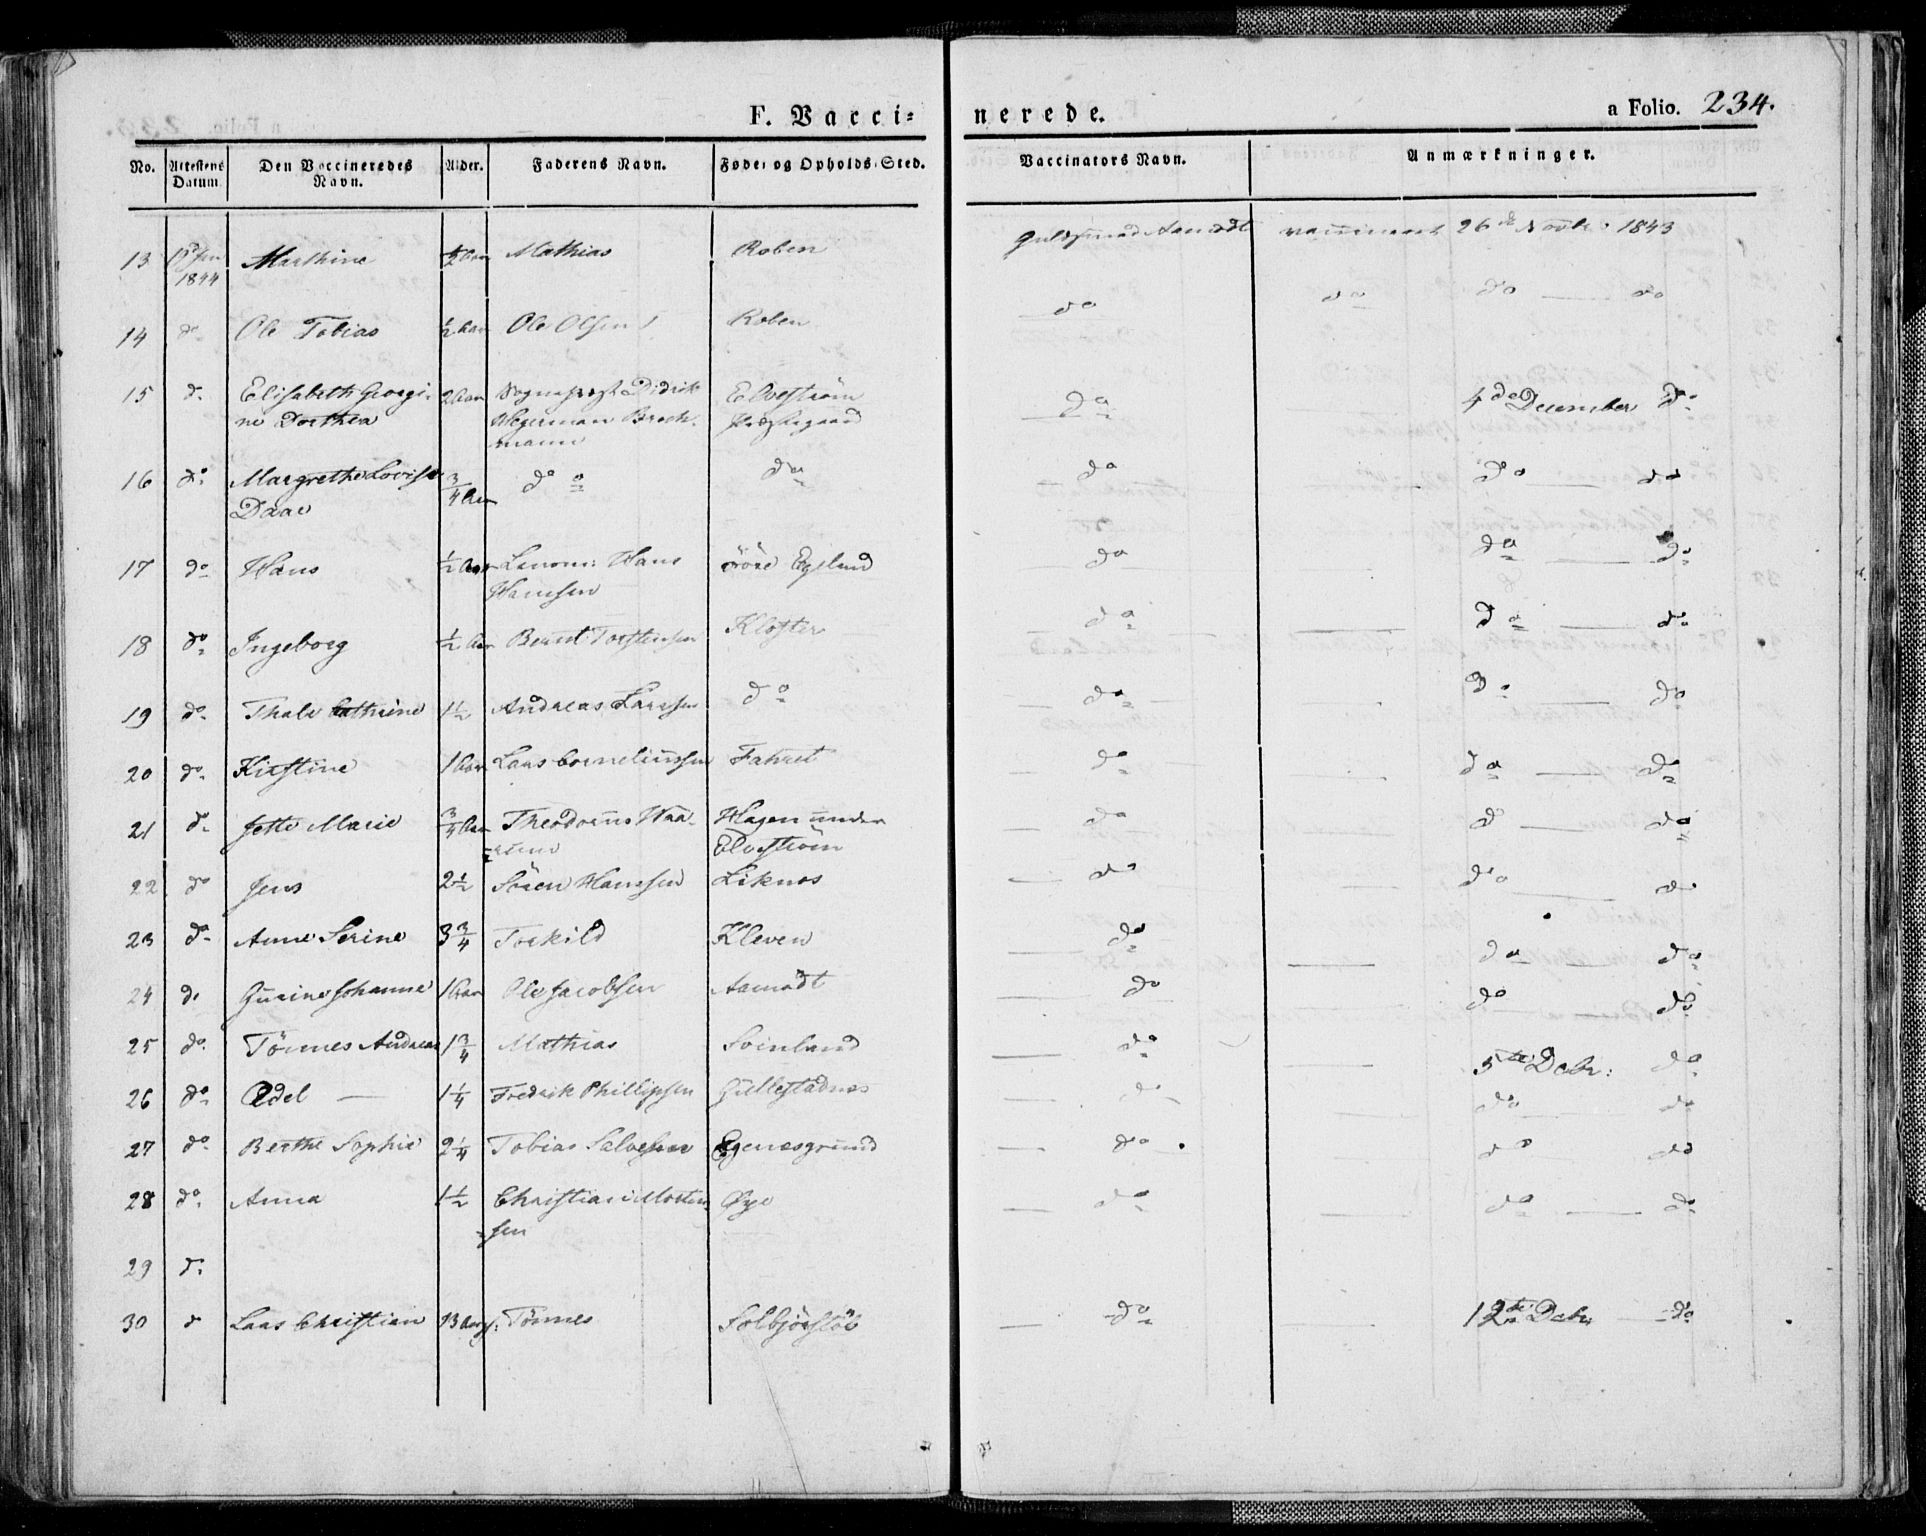 F. Vacci= nerede. a Folio. 234.
No. Attestens Datum. Den Vaccineredes Navn. Alder. Faderens Navn. Føde- og Opholds-Sted. Vaccinators Navn. Anmærkninger.
13 1844 Marthine ½ Aar Mathias Roben Guldsmed Aamodt vaccineret 26de Novbr. 1843
14 do Ole Tobias ½ Aar Ole Olsen Roben do do do do
15 do Elisabeth Georgi- 2 Aar Sognepræst Didrik Elvestrøm do 4de December do
ne Dorthea Wegerman Brock- Præstegaard
mann
16 do Margrethe Lovise ¾ Aar do do do do do
Daae
17 do Hans ½ Aar Hans Egelund do do do
Hansen
18 do Ingeborg ½ Aar Bernt Torstensen Kloster do do do
19 do Thale Cathrine 1½ Andreas Larssen do do do do
20 do Kirstine 1 Aar Lars Corneliussen Fahret do do do
21 do Jette Marie ¾ Aar Theodorus Waa- Hagen under do do do
=rum Elvestrøm
22 do Jens 2½ Sören Hanssen Liknes do do do
23 do Anne Serine 3¾ Torkild Kleven do do do
24 do Gurine Johanne 1 Aar Ole Jacobsen Aamodt do do do
25 do Tönnes Andreas 1¾ Mathias Svinland do 5te Decbr: do
26 do Edel — 1¼ Fredrik Phillipsen Gullestadnes do do do
27 do Berthe Sophie 2¼ Tobias Salvesen Egenesgrund do do do
28 do Anna 1½ Christian Morten- Øye do do do
=sen
29 do
30 do Lars Christian 13 Aar Tönnes Solbjörslöb do 12te Decbr. do